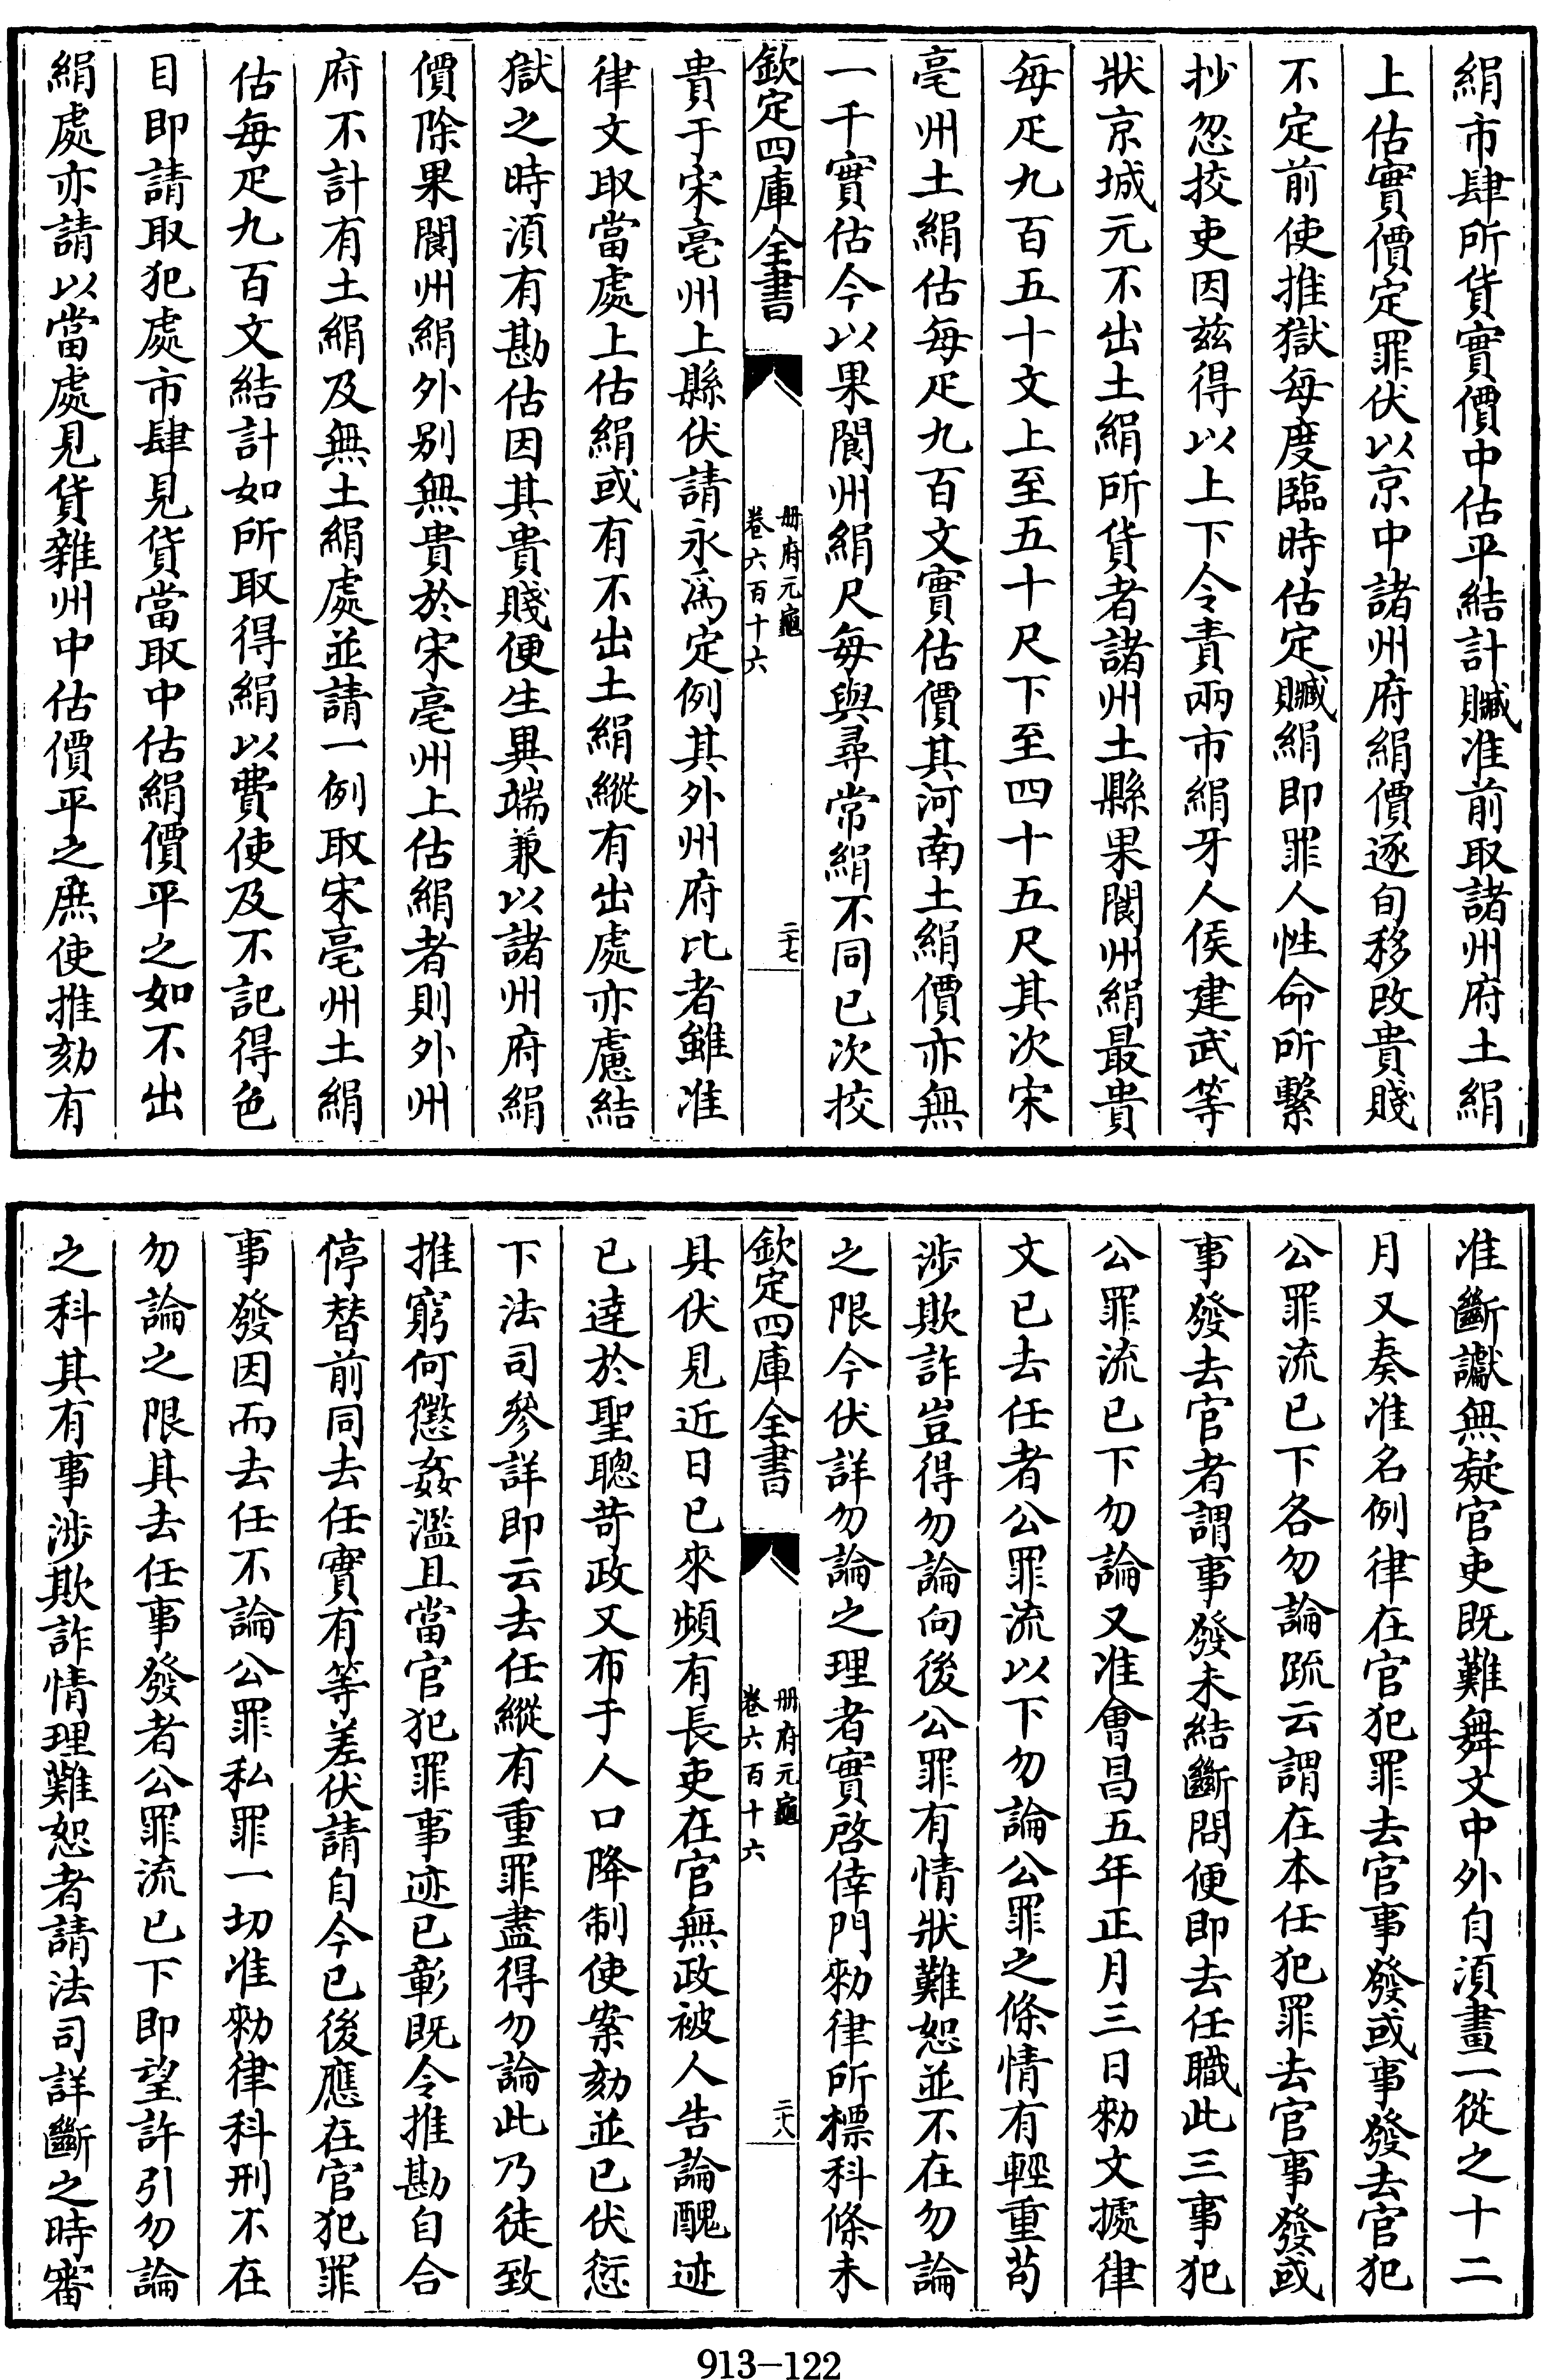 絹市肆所貨實價中估平結計贓准前取諸州府土絹
上估實價定罪伏以京中諸州府絹價逐旬移改貴賤
不定前使推獄每度臨時估定贓絹即罪人性命所繫
抄忽挍吏因兹得以上下令責兩市絹牙人侯建武等
狀京城元不出土絹所貨者諸州土縣果閬州絹最貴
每疋九百五十文上至五十尺下至四十五尺其次宋
亳州土絹估每疋九百文實估價其河南土絹價亦無
一千實估今以果閬州絹尺每與尋常絹不同已次挍
欽定四庫全書
册府元龜
卷六百十六
二十七
貴于宋亳州上縣伏請永爲定例其外州府比者雖准
律文取當處上估絹或有不出土絹縱有出處亦慮結
獄之時湏有勘估因其貴賤便生異端兼以諸州府絹
價除果閬州絹外别無貴於宋亳州上估絹者則外州
府不計有土絹及無土絹處並請一例取宋亳州土絹
估每疋九百文結計如所取得絹以費使及不記得色
目即請取犯處市肆見貨當取中估絹價平之如不出
絹處亦請以當處見貨雜州中估價平之庶使推劾有
准斷讞無疑官吏既難舞文中外自湏畫一從之十二
月又奏准名例律在官犯罪去官事發或事發去官犯
公罪流已下各勿論疏云謂在本任犯罪去官事發或
事發去官者謂事發未結斷問便即去任職此三事犯
公罪流已下勿論又准會昌五年正月三日勑文據律
文已去任者公罪流以下勿論公罪之條情有輕重苟
涉欺詐豈得勿論向後公罪有情狀難恕並不在勿論
之限今伏詳勿論之理者實啓倖門勑律所標科條未
欽定四庫全書
册府元龜
卷六百十六
二十八
具伏見近日已來頻有長吏在官無政被人告論醜迹
已達於聖聰苛政又布于人口降制使案劾並已伏愆
下法司參詳即云去任縱有重罪盡得勿論此乃徒致
推窮何懲姦濫且當官犯罪事迹已彰既令推勘自合
停替前同去任實有等差伏請自今已後應在官犯罪
事發因而去任不論公罪私罪一切准勑律科刑不在
勿論之限其去任事發者公罪流已下即望許引勿論
之科其有事涉欺詐情理難恕者請法司詳斷之時審
913-122